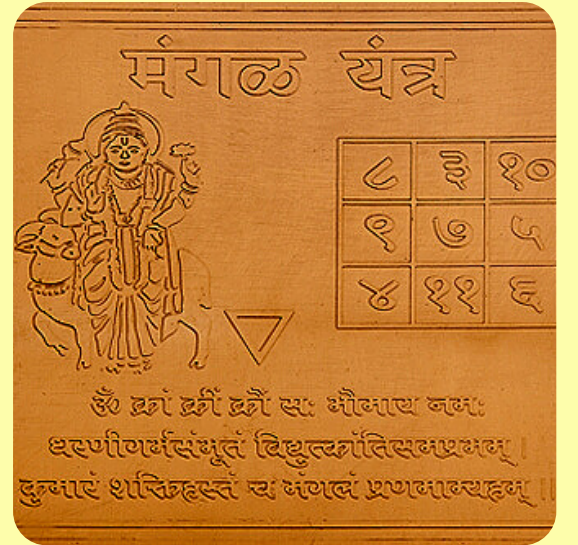 मंगळ यंत्र
८ ३ १०
९ ७ ५
४ ११ ६
ॐ क्रां क्रीं क्रौं सः भौमाय नमः
धरणीगर्भसंभूतं विद्युत्कांतिसमप्रभम् ।
कुमारं शक्तिहस्तं च मंगलं प्रणमाम्यहम् ॥